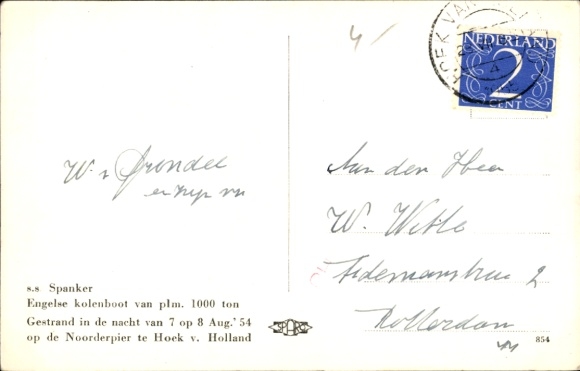 4/
HOEK VAN
NEDERLAND
2
CENT
W.
en zijn vr
Aan den Heer
W. Witte
2
Rotterdam
s.s Spanker
Engelse kolenboot van plm. 1000 ton
Gestrand in de nacht van 7 op 8 Aug.' 54
op de Noorderpier te Hoek v. Holland
SPARO
854